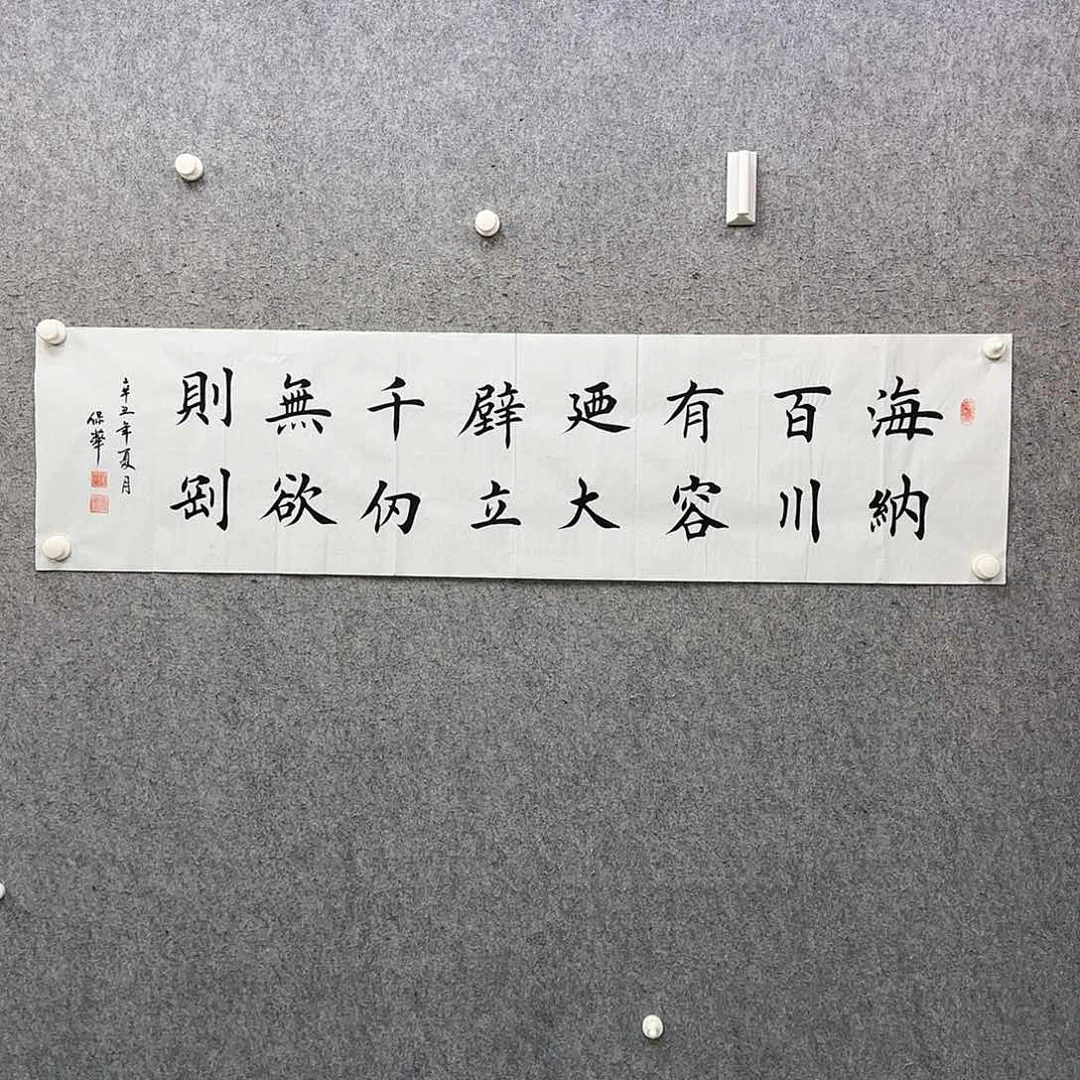 海納
百川
有容
廼大
壁立
千仞
無欲
則剛
辛丑年夏月
保華